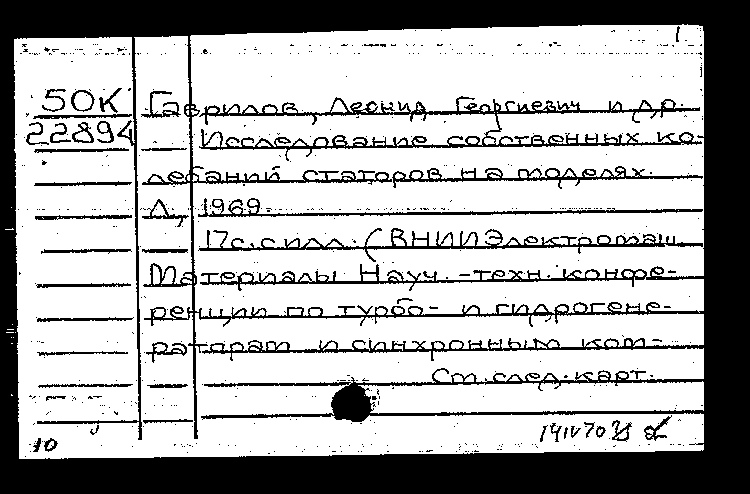 50К Гаврилов, Леонид Георгиевич и др.
22894 Исследование собственных ко-
лебаний статоров на моделях.
Л., 1969.
17с.силл. (ВНИИЭлектромаш.
Материалы Науч.-техн. конфе-
ренции по турбо- и гидрогене-
раторам и синхронным ком-
См.след.карт.
10
14IV70